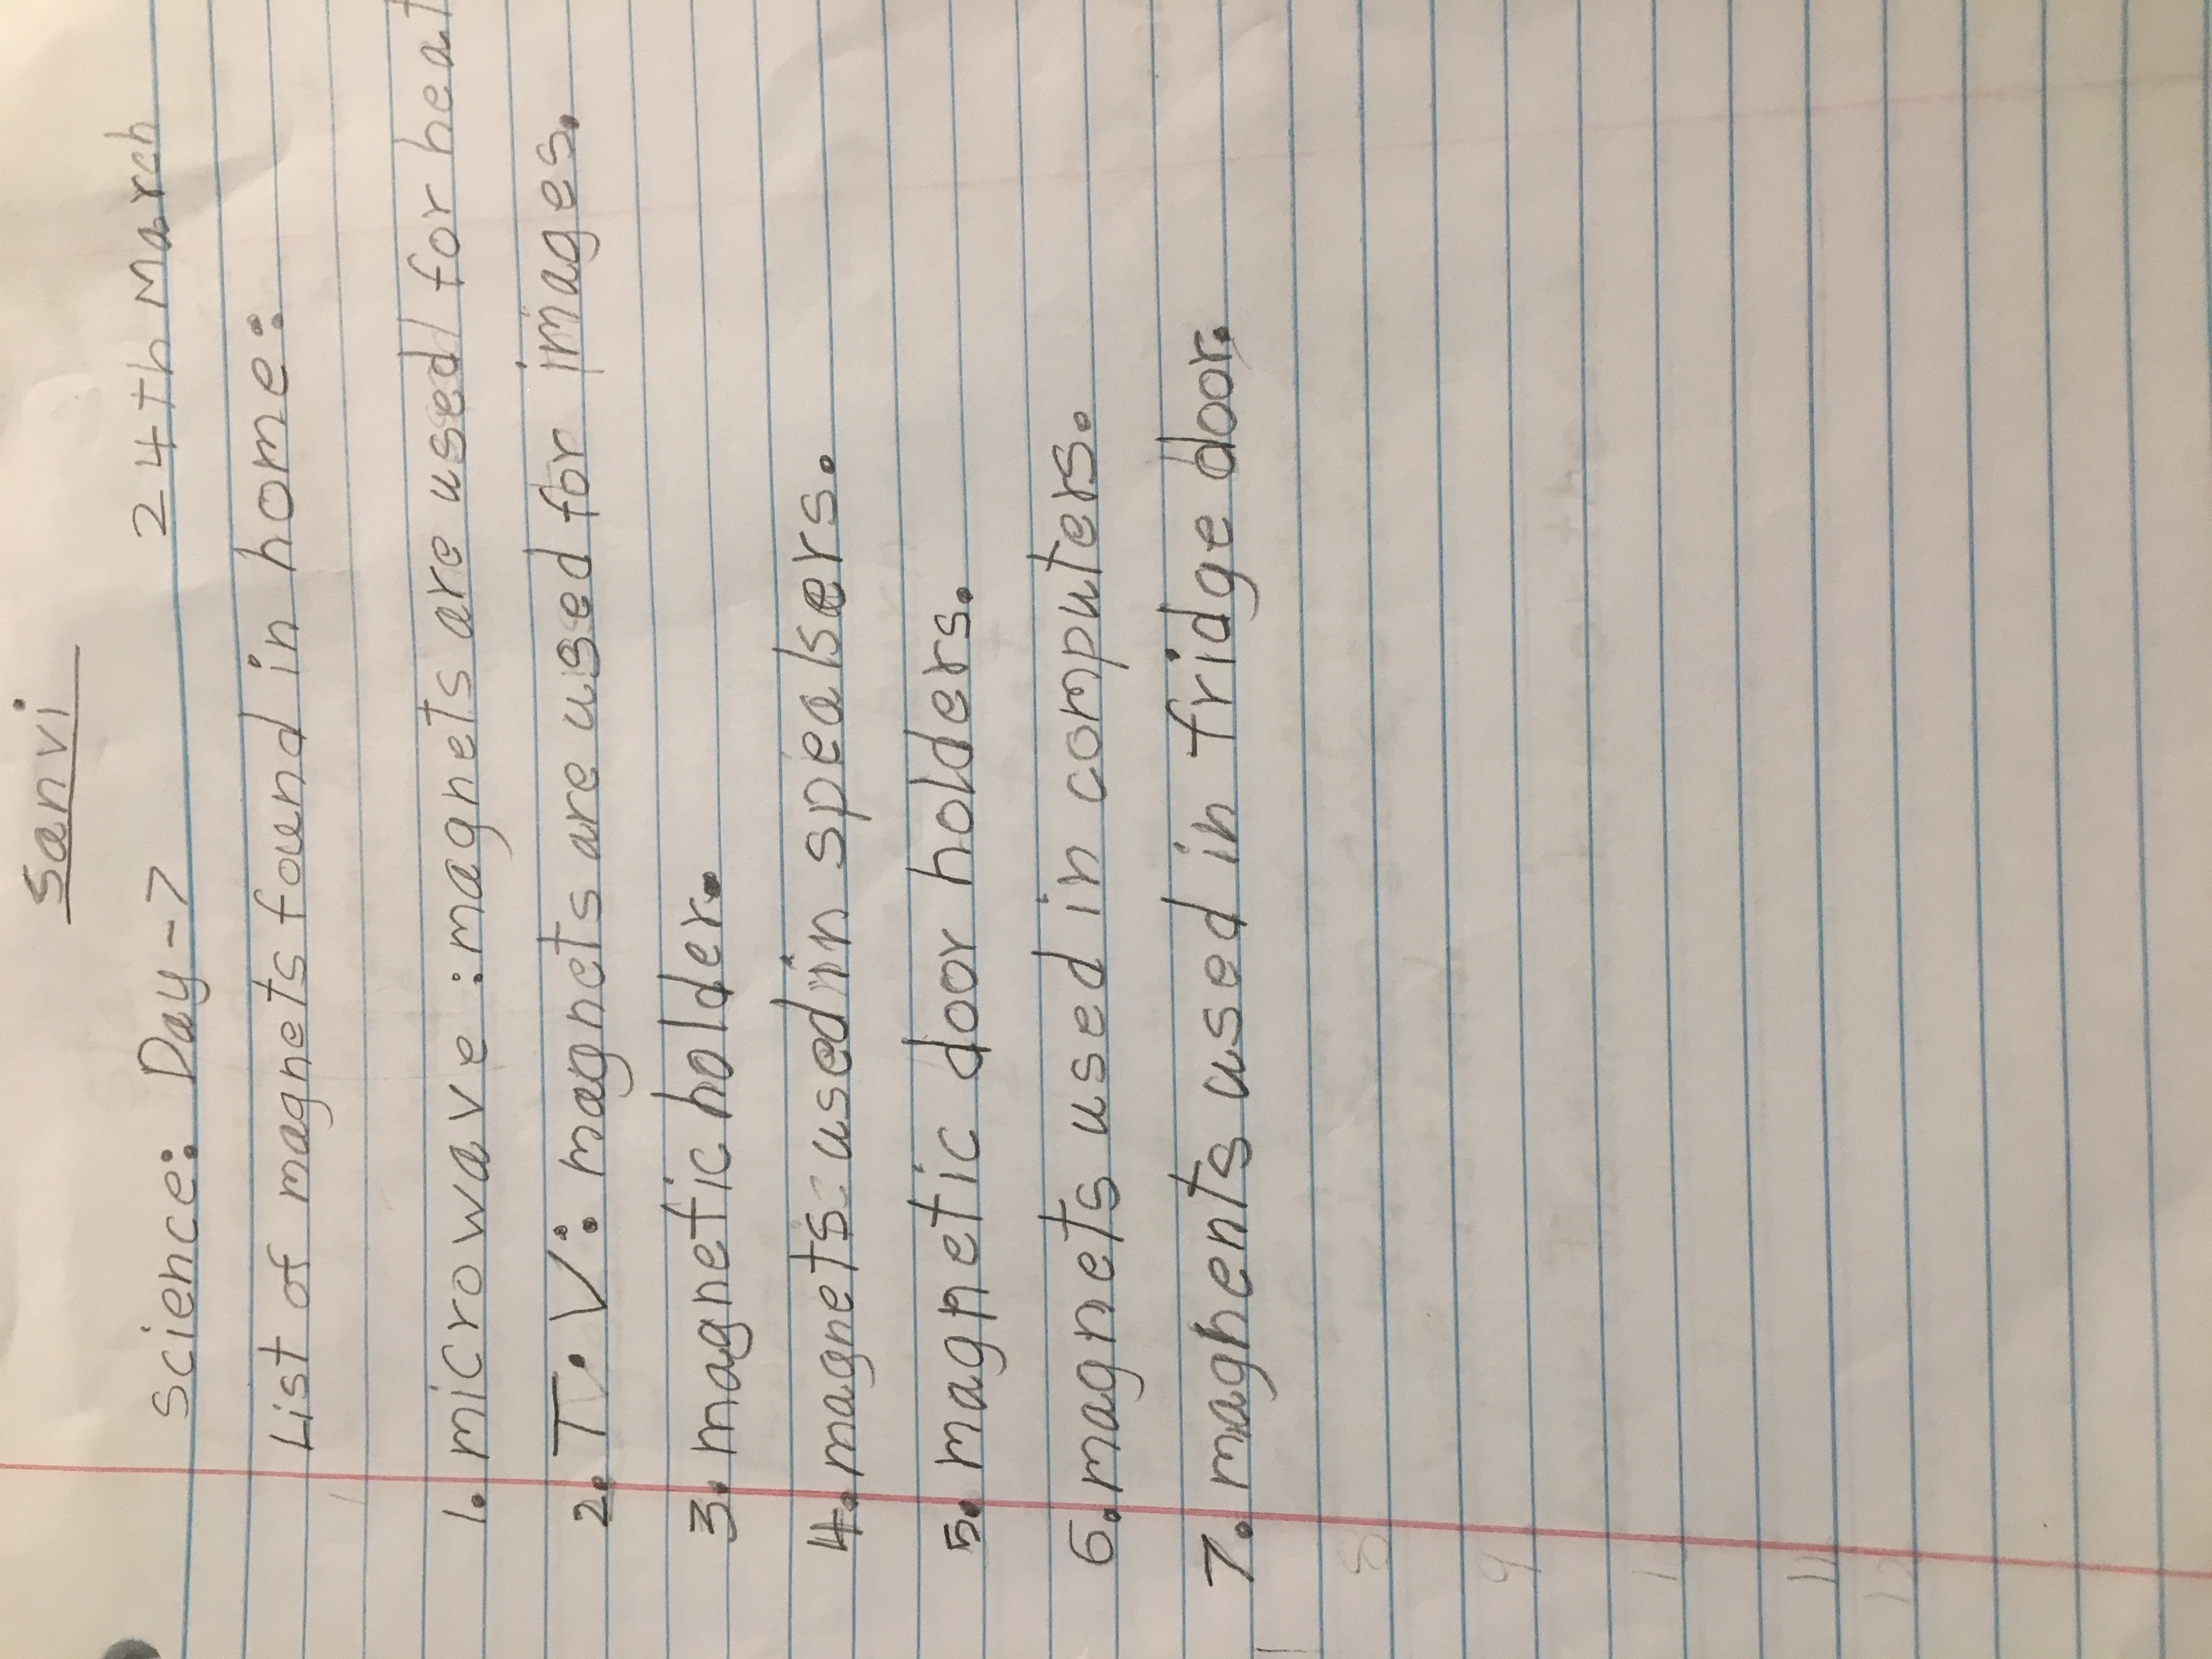 Sanvi
Science: Day-7 24th March
List of magnets found in home:
1. microwave : magnets are used for heat
2. T.V: magnets are used for images.
3. magnetic holder.
4. magnets used in speakers.
5. magnetic door holders.
6. magnets used in computers.
7. maghents used in fridge door.
8
9
1
11
12